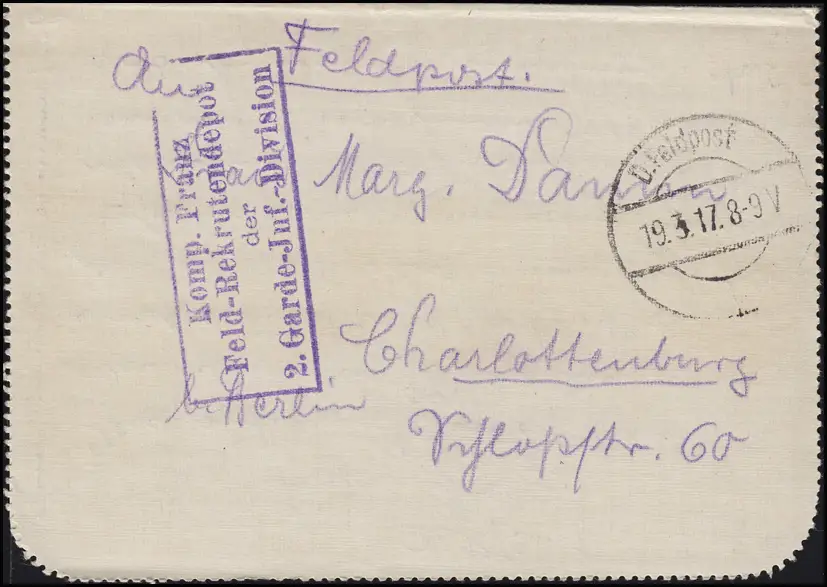 An Feldpost.
Marg. Damm
Charlottenburg
b. Berlin
Schloßstr. 60
Komp. Franz
Feld-Rekrutendepot
der
2. Garde-Inf.-Division
D. Feldpost
19.3.17. 8-9 V